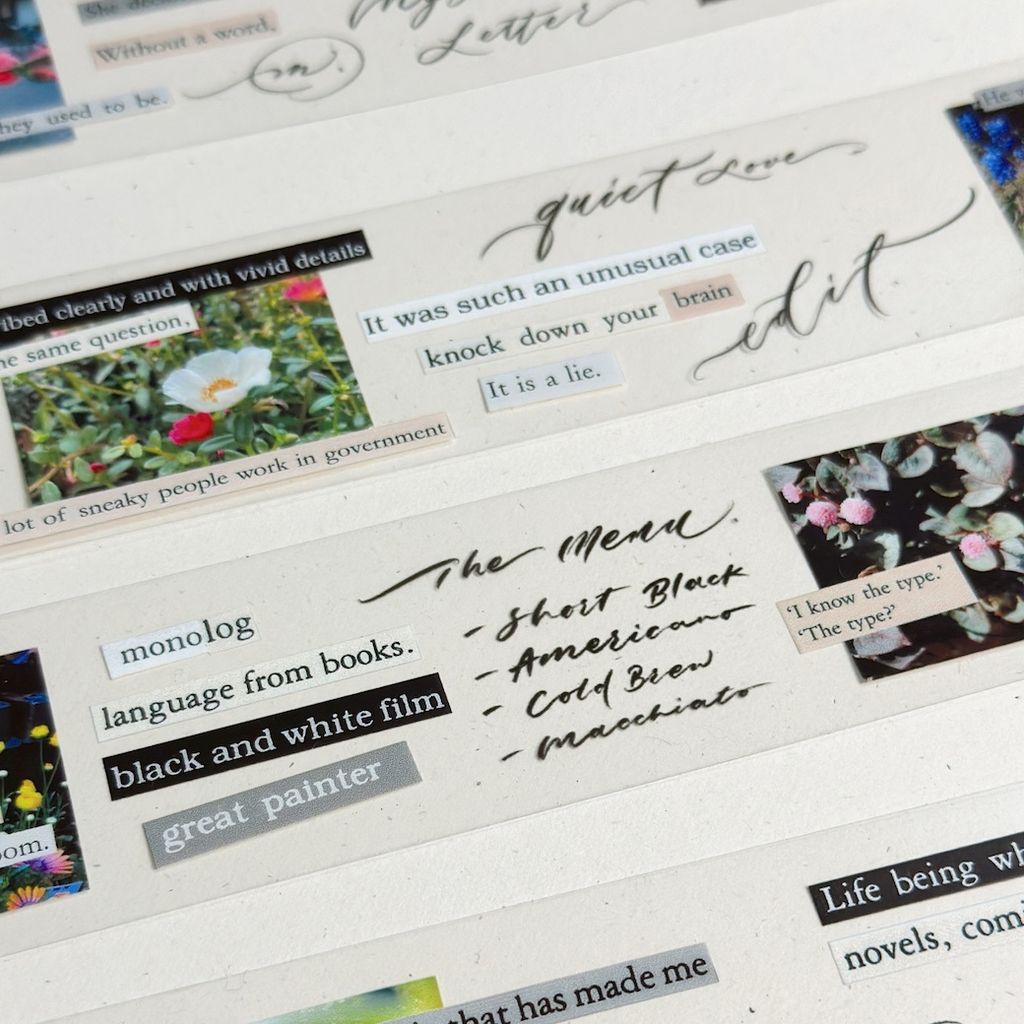 She
Without a word,
m.
Letter
hey used to be.
quiet Love
ibed clearly and with vivid details
he same question,
It was such an unusual case
knock down your brain
edit
It is a lie.
lot of sneaky people work in government
The Menu.
- Short Black
- Americano
- Cold Brew
- macchiato
'I know the type.'
'The type?'
monolog
language from books.
black and white film
great painter
oom.
Life being wh
novels, comi
that has made me